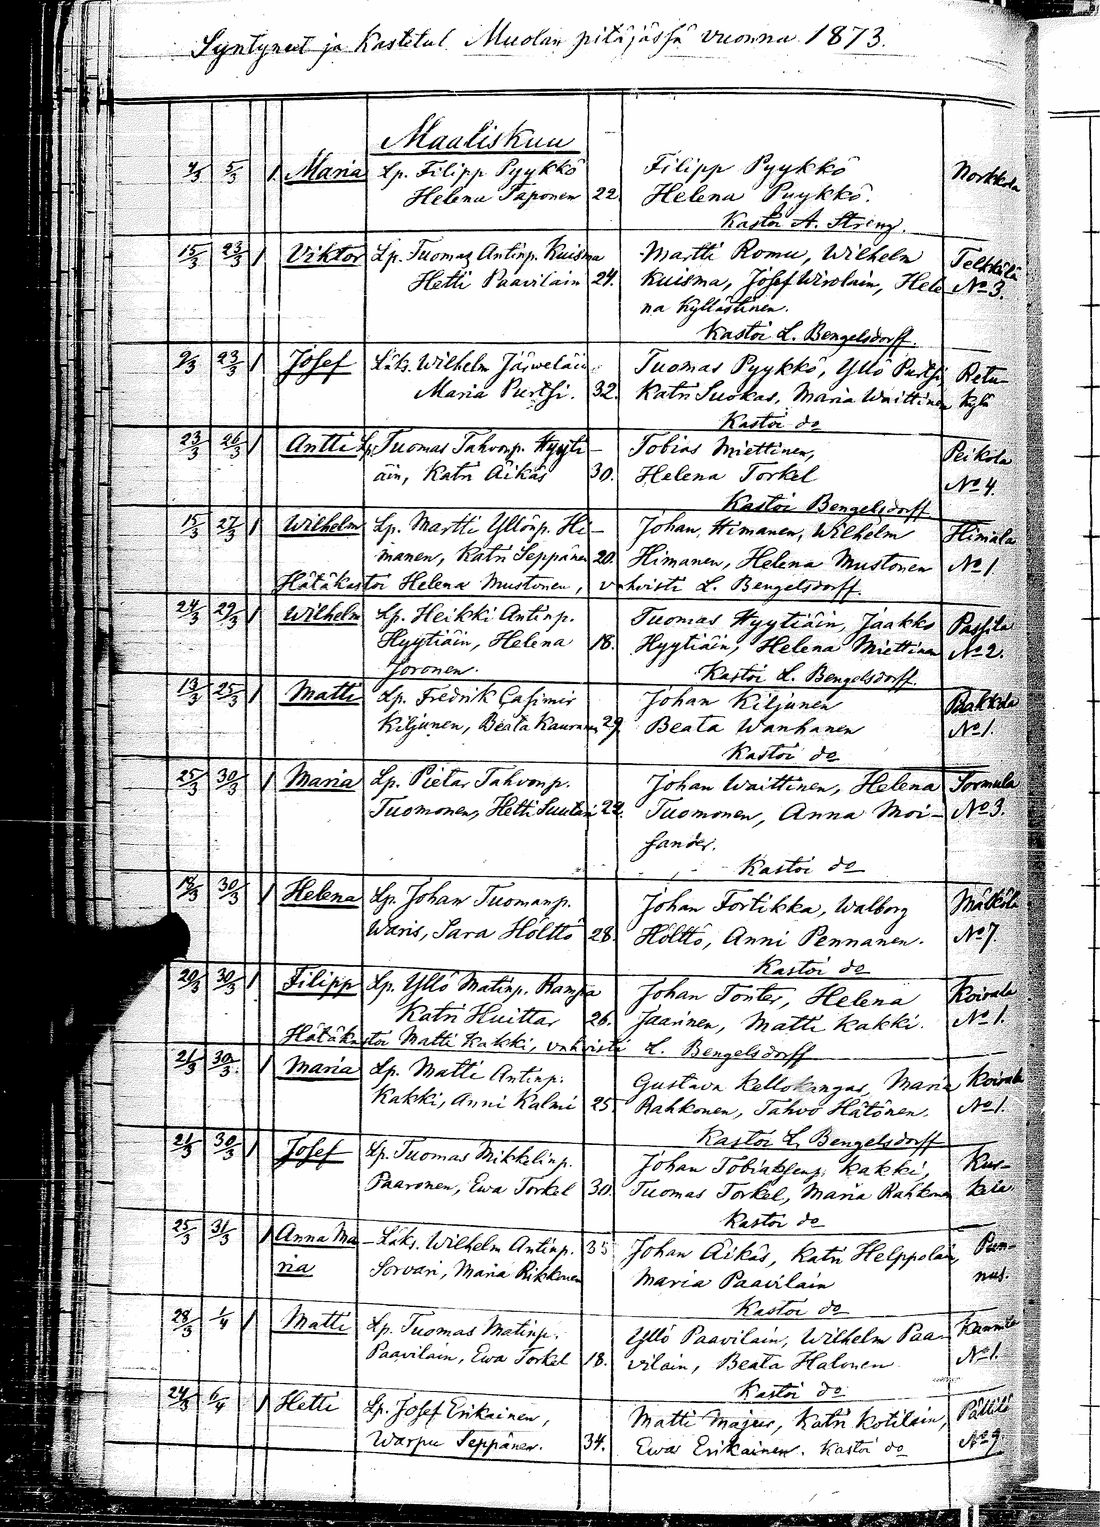 Syntyneet ja Kastetut Muolan pitäjässä vuonna 1873.
Maaliskuu
4/3 5/3 1. Maria Lp. Filipp Pyykkö Filipp Pyykkö Norkkola
Helena Taponen 22. Helena Pyykkö.
Kastoi A. Streng.
15/3 23/3 1 Viktor Lp. Tuomas Antinp. Kuisma Martti Romu, Wilhelm Telkkälä
Hetti Paavilain 24. Kuisma, Josef Wirolain, Hele- No 3.
na Kyllästinen.
Kastoi L. Bengelsdorff.
9/3 23/3 1 Josef Läks. Wilhelm Jääweläin Tuomas Pyykkö, Yllö Purtsi, Retu-
Maria Purtsi. 32. Katri Suokas, Maria Waittinen kylä
Kastoi do
23/3 26/3 1 Antti Lp. Tuomas Tahvonp. Hyyti- Tobias Miettinen, Peikola
äin, Katri Äikäs 30. Helena Torkel No 4.
Kastoi Bengelsdorff
15/3 27/3 1 Wilhelm Lp. Martti Yllönp. Hi- Johan Himanen, Wilhelm Himala
manen, Katri Seppänen 20. Himanen, Helena Mustonen No 1.
Hätäkastoi Helena Mustonen, vahvisti L. Bengelsdorff.
24/3 29/3 1 Wilhelm Lp. Heikki Antinp. Tuomas Hyytiäin, Jaakko Passila
Hyytiäin, Helena 18. Hyytiäin, Helena Miettinen No 2.
Joronen. Kastoi L. Bengelsdorff.
13/3 25/3 1 Matti Lp. Fredrik Casimir Johan Kiljunen Paakkola
Kiljunen, Beata Kauranen 29. Beata Wanhanen No 1.
Kastoi do
25/3 30/3 1 Maria Lp. Pietar Tahvonp. Johan Waittinen, Helena Sormula
Tuomonen, Hetti Suutari 22. Tuomonen, Anna Moi- No 3.
sander.
Kastoi do
30/3 1 Helena Lp. Johan Tuomanp. Johan Fortikka, Walborg Mälkölä
Waris, Sara Hölttö 28. Hölttö, Anni Pennanen. No 7.
Kastoi do
20/3 30/3 1 Filipp Lp. Yllö Matinp. Rampa Johan Tonter, Helena Koirala
Katri Huittar 26. Jaarinen, Matti Kakki. No 1.
Hätäkastoi Matti Kakki, vahvisti L. Bengelsdorff
21/3 30/3 1 Maria Lp. Matti Antinp. Gustava Kellokangas, Maria Koirala
Kakki, Anni Kalmi 25. Rahkonen, Tahvo Hätönen. No 1.
Kastoi L. Bengelsdorff
21/3 30/3 1 Josef Lp. Tuomas Mikkelinp. Johan Tobiaksenp. Kakki, Kus-
Paaronen, Ewa Torkel 30. Tuomas Torkel, Maria Rahkonen kela
Kastoi do
25/3 31/3 1 Anna Ma- Läks. Wilhelm Antinp. 35 Johan Äikäs, Katri Helppolain, Pun-
ria Sorvari, Maria Rikkonen Maria Paavilain nus.
Kastoi do
28/3 1/4 1 Matti Lp. Tuomas Matinp. Yllö Paavilain, Wilhelm Paa- Kannila
Paavilain, Ewa Torkel 18. vilain, Beata Halonen No 1.
Kastoi do
24/3 6/4 1 Hetti Lp. Josef Erikainen, Matti Majur, Katri Kotilain, Pällilä
Warpu Seppänen. 34. Ewa Erikainen. Kastoi do No 9